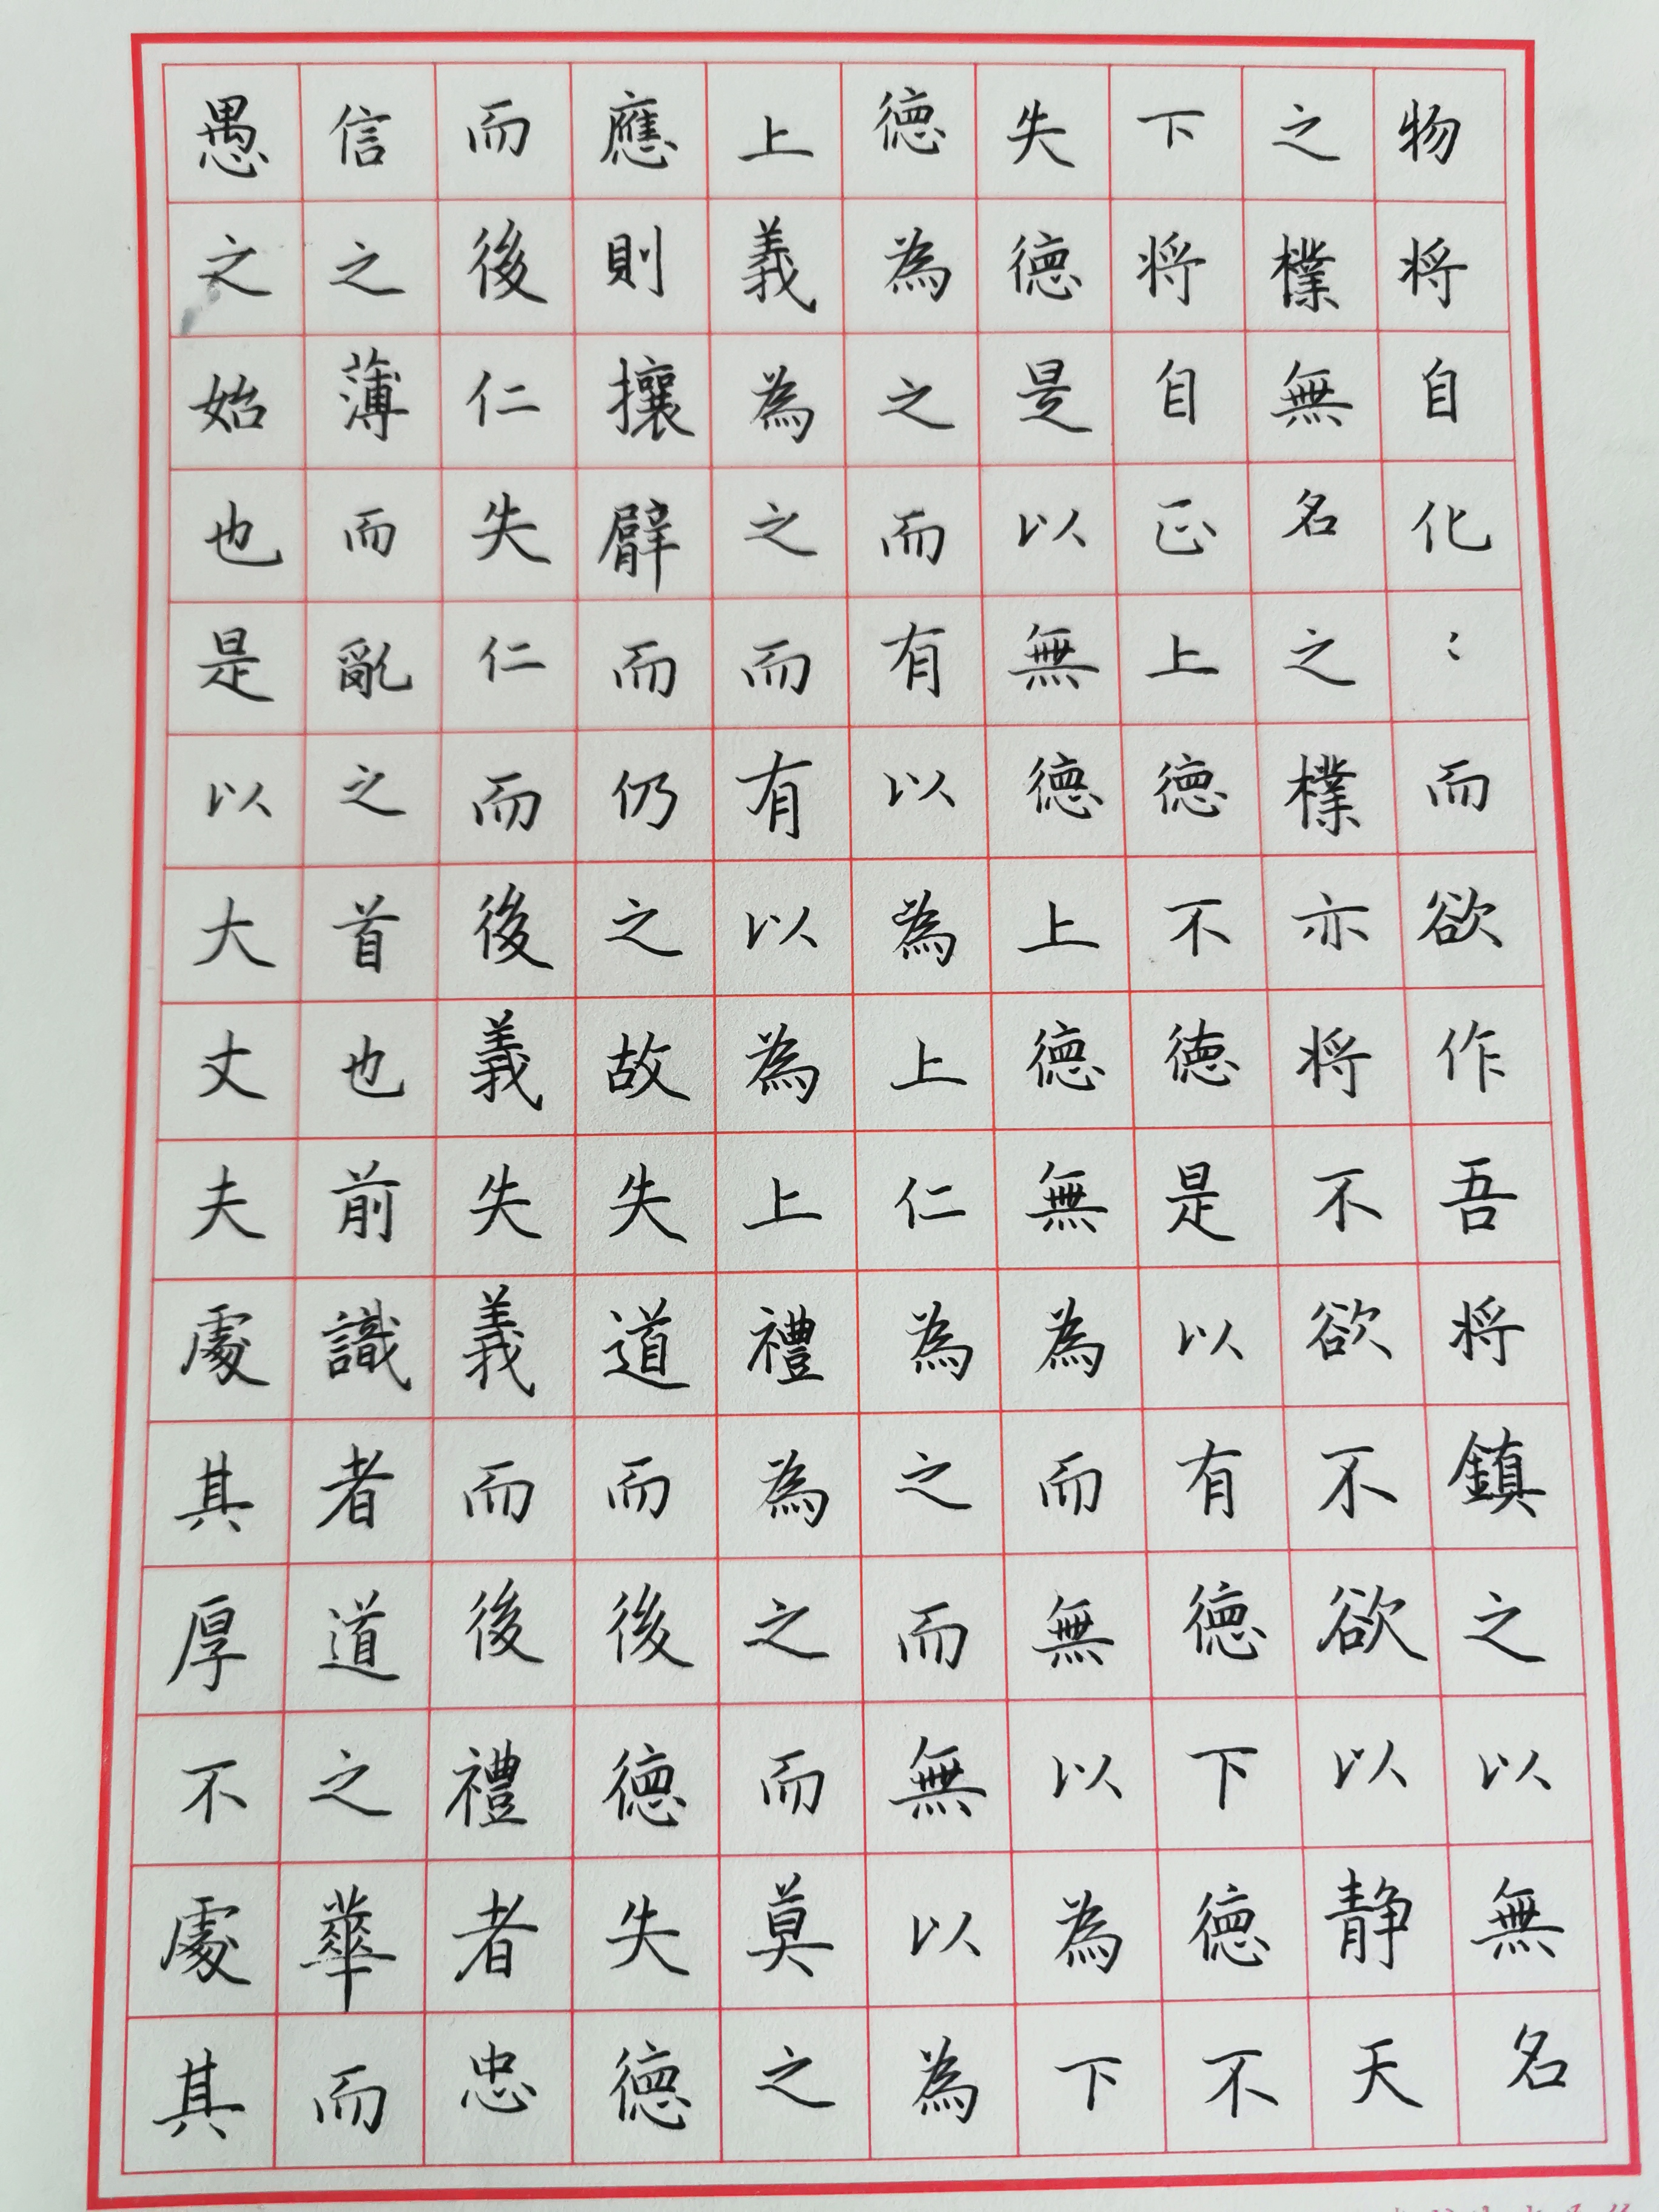 物将自化：而欲作吾将鎮之以無名
之樸無名之樸亦将不欲不欲以静天
下将自正上德不德是以有德下德不
失德是以無德上德無為而無以為下
德為之而有以為上仁為之而無以為
上義為之而有以為上禮為之而莫之
應則攘臂而仍之故失道而後德失德
而後仁失仁而後義失義而後禮者忠
信之薄而亂之首也前識者道之華而
愚之始也是以大丈夫處其厚不處其